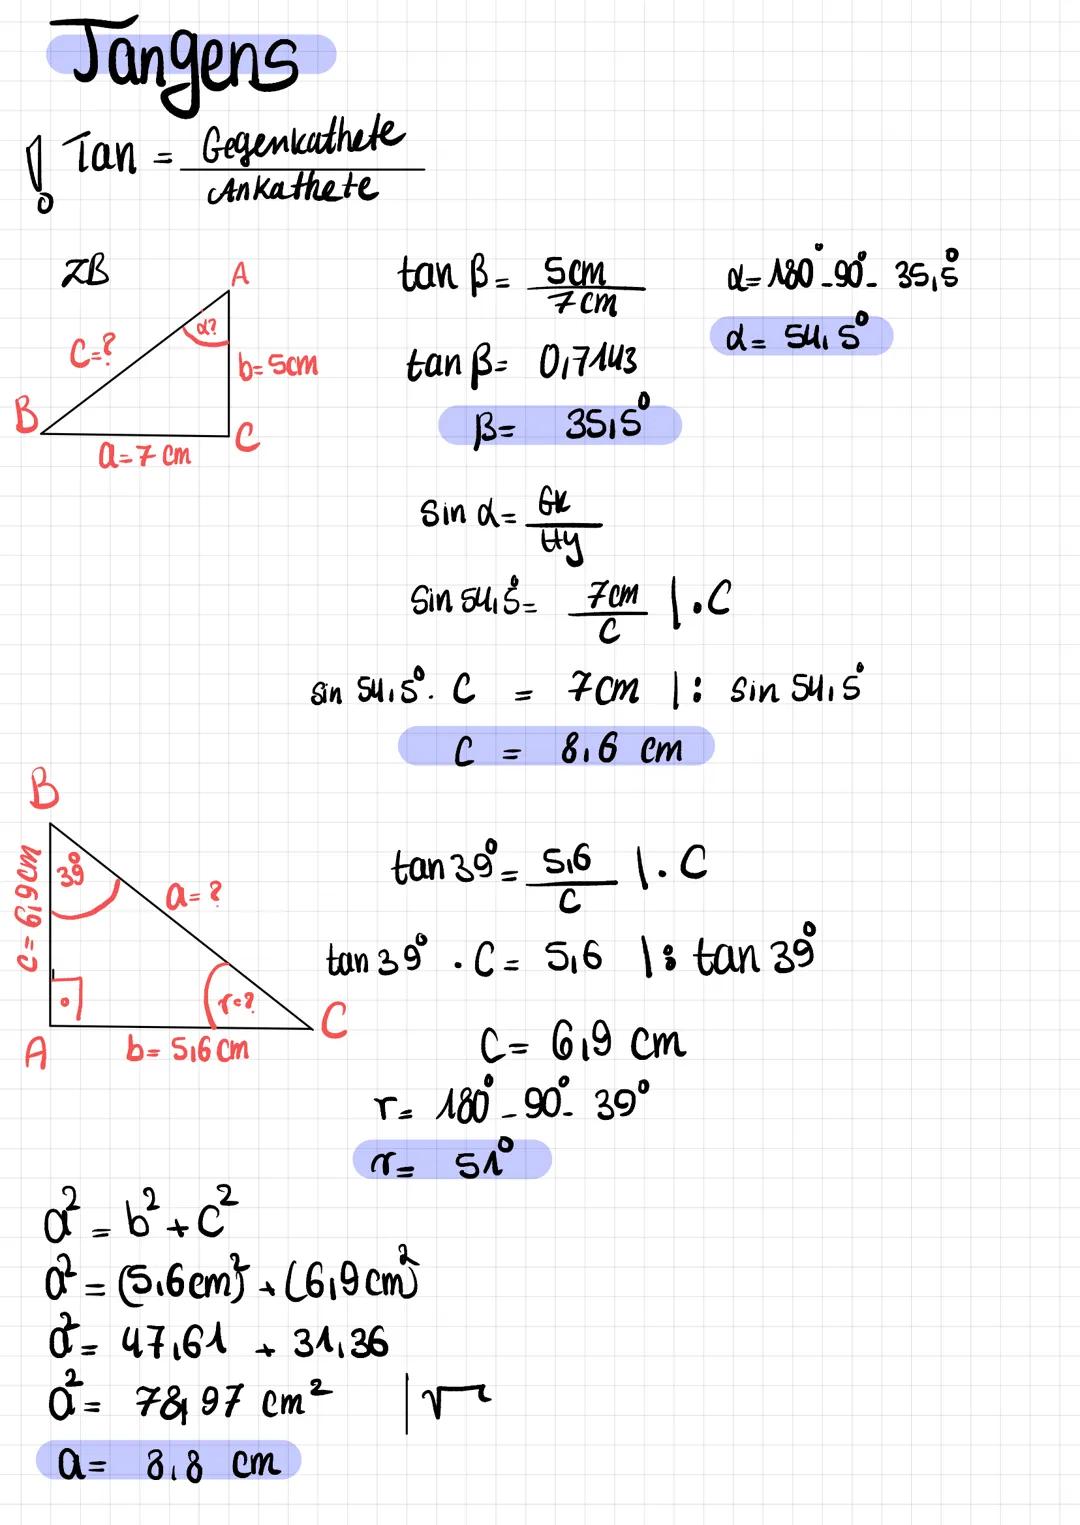 Tangens
! Tan = Gegenkathete / Ankathete
zB
A
α?
c=?
b=5cm
B
C
a=7cm
tan β = 5cm / 7cm
tan β = 0,7143
β = 35,5°
α = 180° - 90° - 35,5°
α = 54,5°
sin α = GK / Hy
Sin 54,5° = 7cm / C | · C
sin 54,5° · C = 7cm | : sin 54,5°
C = 8,6 cm
B
39°
c = 6,9cm
a = ?
r=?
A
b = 5,6 cm
C
tan 39° = 5,6 / C | · C
tan 39° · C = 5,6 | : tan 39°
C = 6,9 cm
r = 180° - 90° - 39°
r = 51°
a² = b² + c²
a² = (5,6cm)² + (6,9cm)²
a² = 47,61 + 31,36
a² = 78,97 cm² | √
a = 8,8 cm